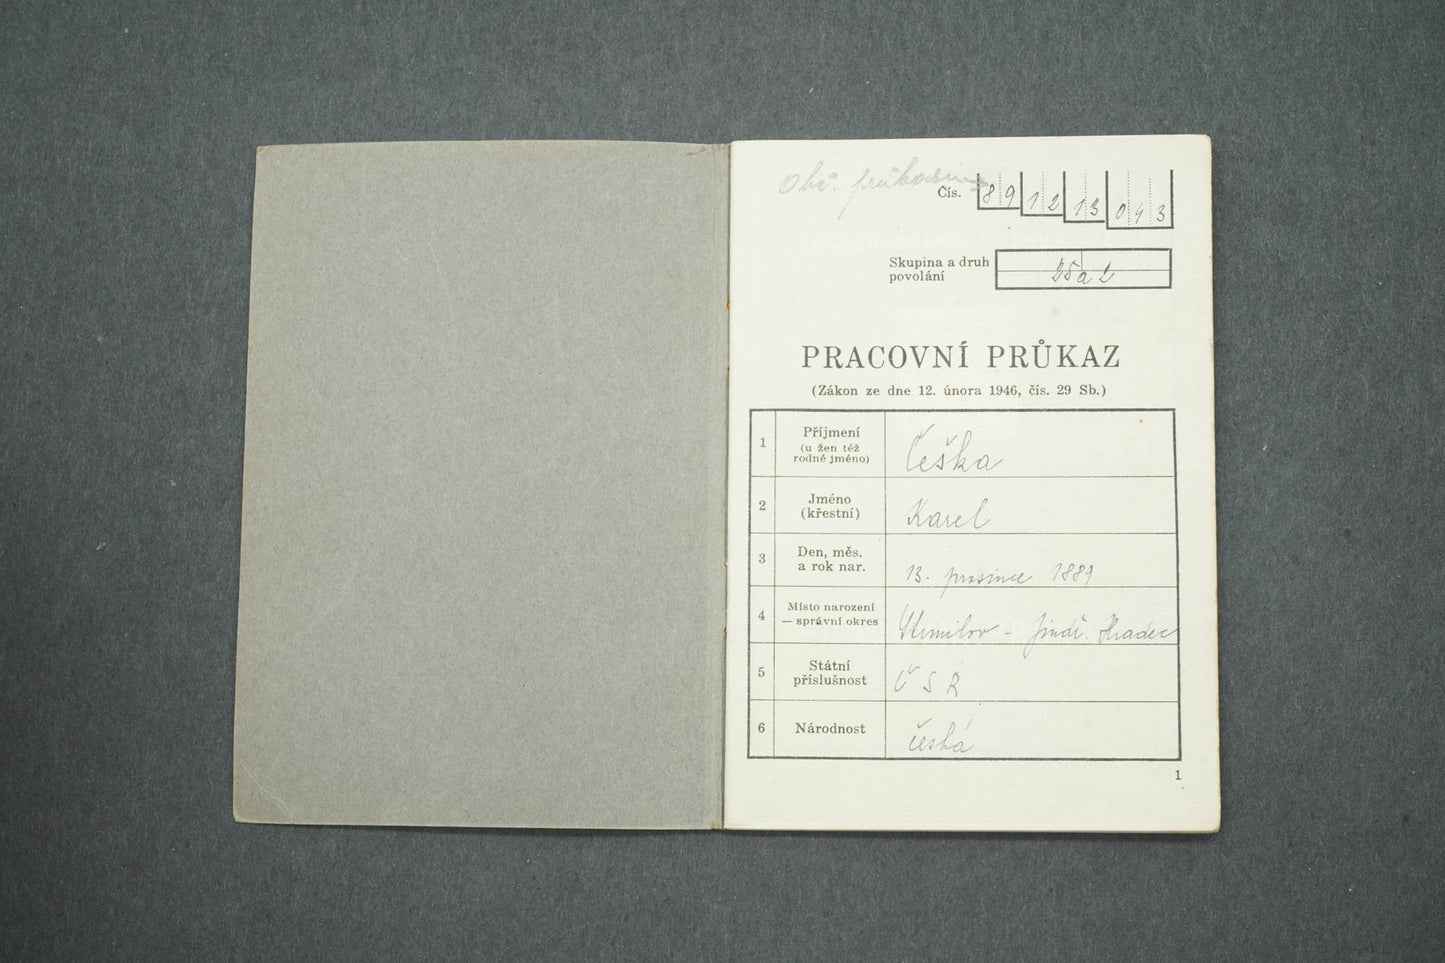 Obč.
Čís. 89 12 13 043
Skupina a druh
povolání
25a2
PRACOVNÍ PRŮKAZ
(Zákon ze dne 12. února 1946, čís. 29 Sb.)
1 Příjmení
(u žen též
rodné jméno)
Češka
2 Jméno
(křestní)
Karel
3 Den, měs.
a rok nar.
13. prosince 1889
4 Místo narození
— správní okres
Strmilov - Jindř. Hradec
5 Státní
příslušnost
ČSR
6 Národnost
česká
1